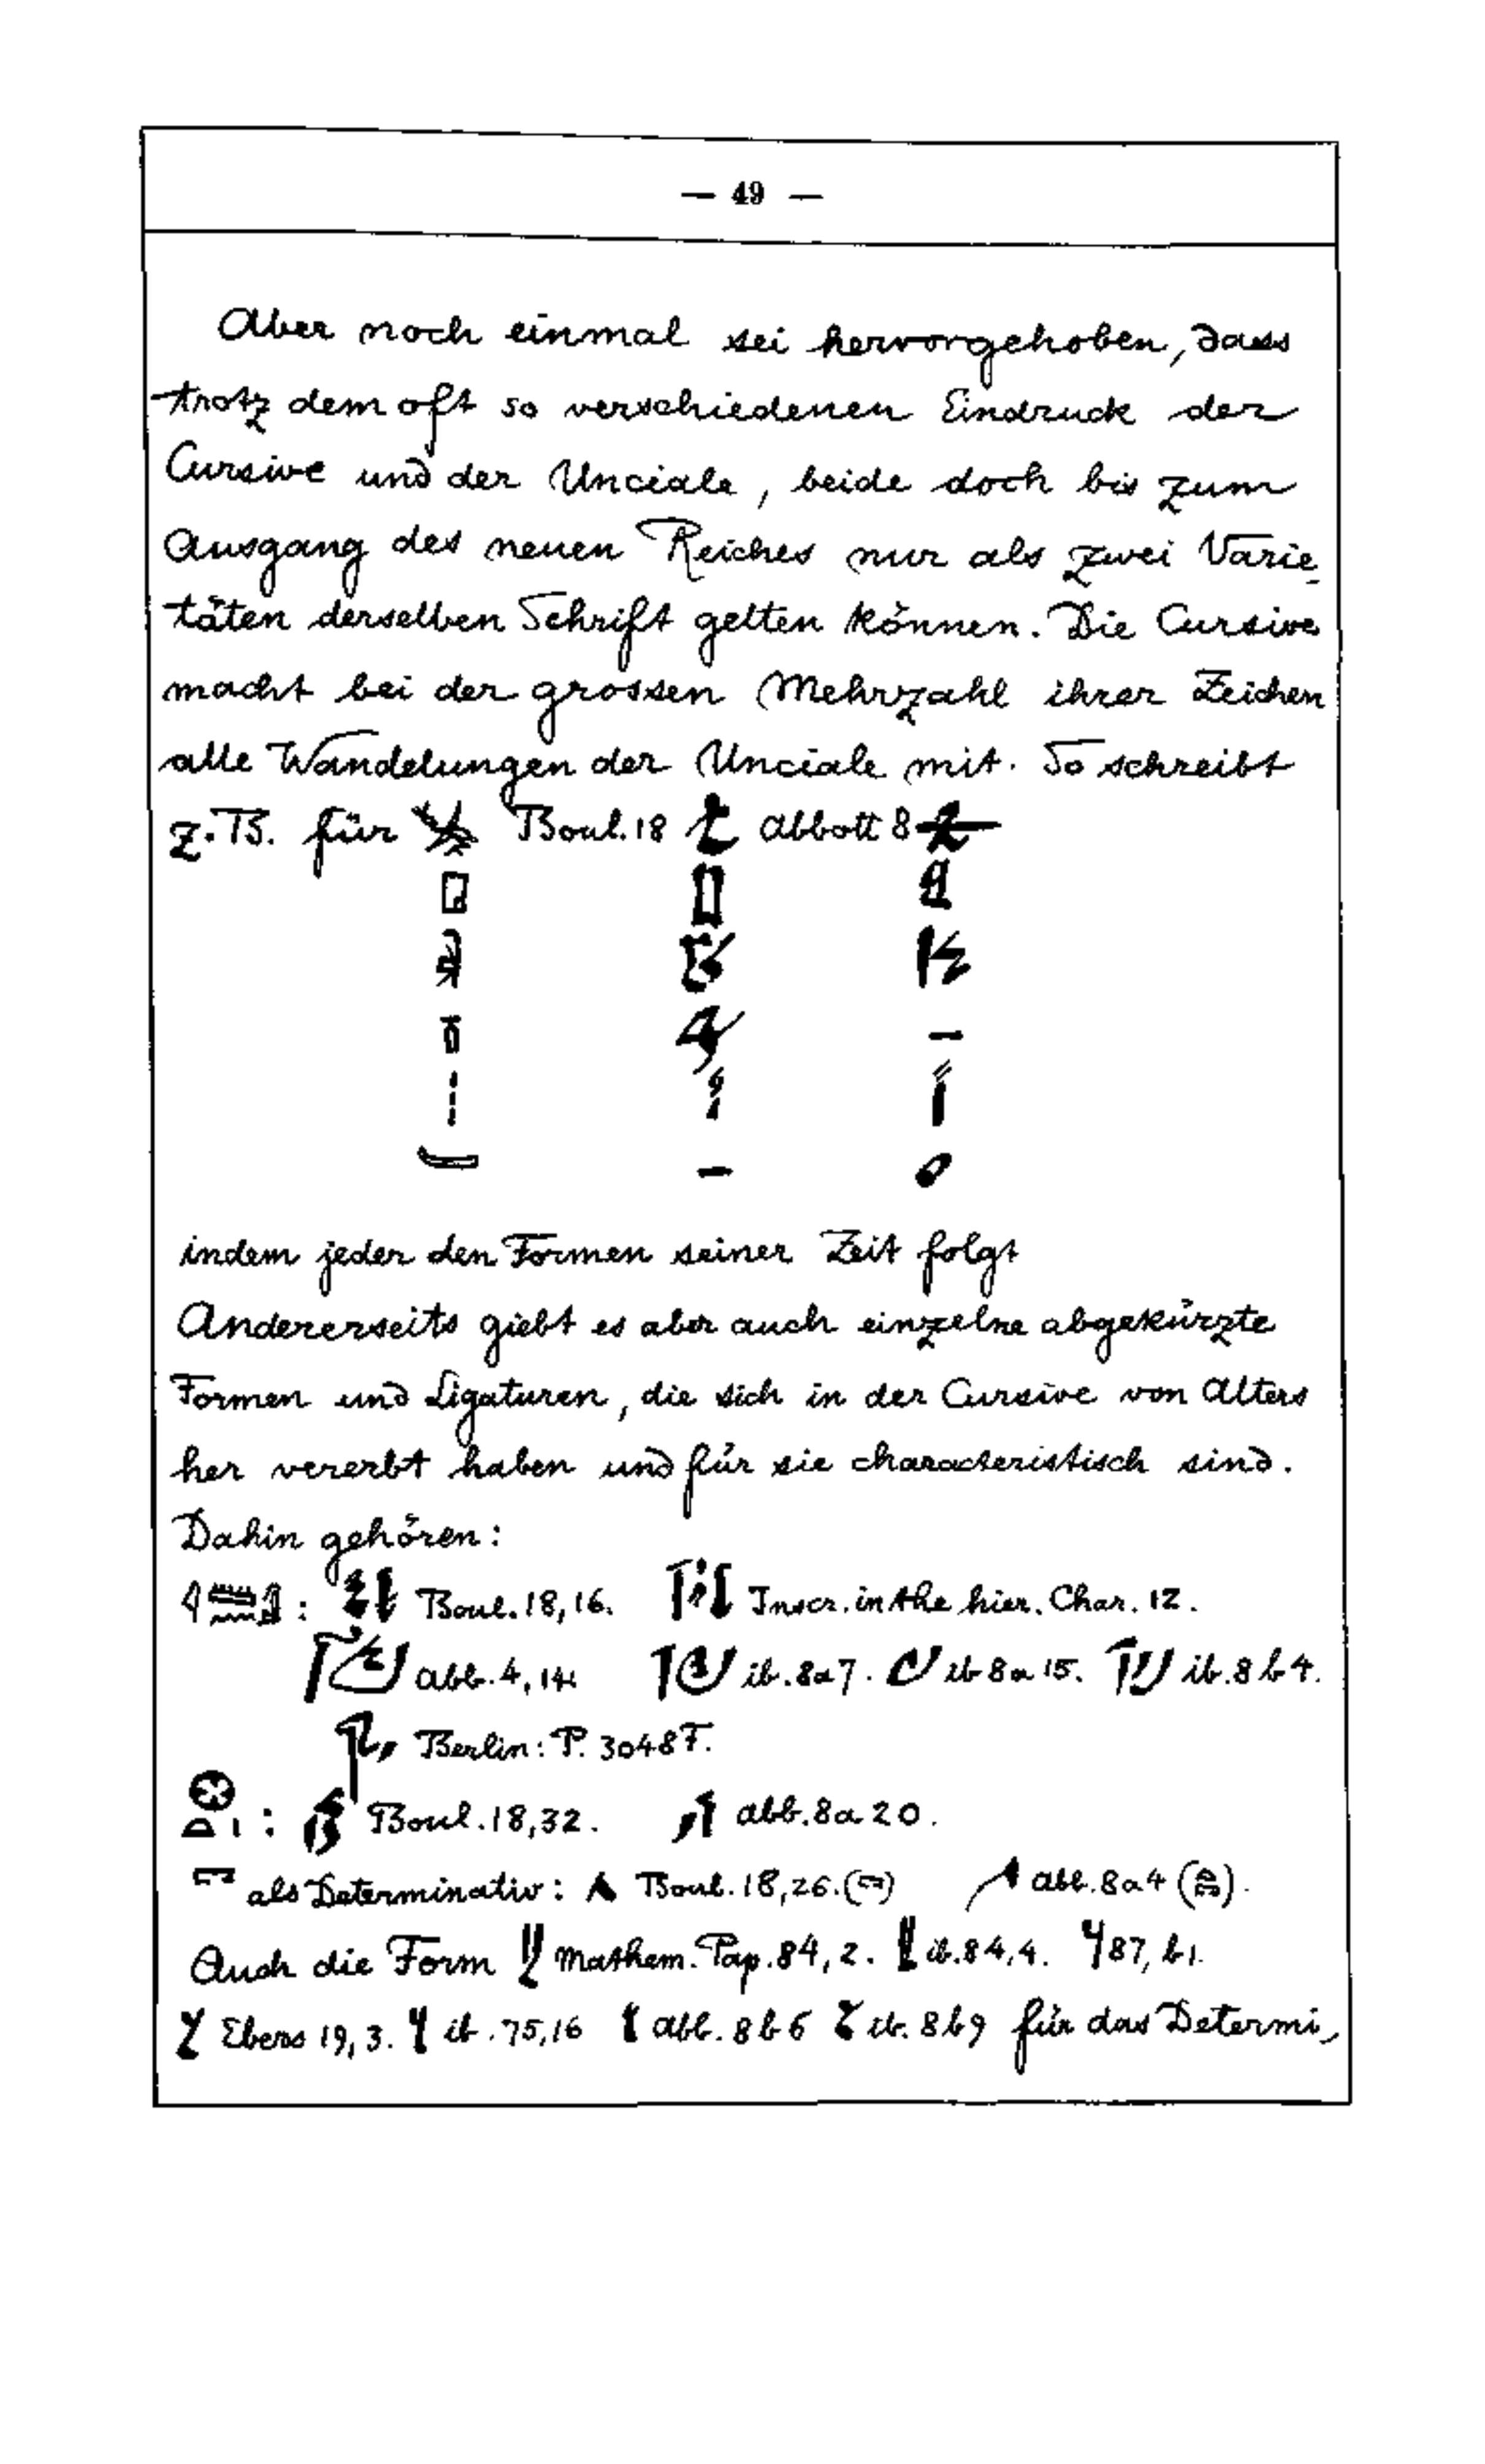 — 49 —
Aber noch einmal sei hervorgehoben, dass
trotz dem oft so verschiedenen Eindruck der
Cursive und der Unciale, beide doch bis zum
Ausgang des neuen Reiches nur als zwei Varie-
täten derselben Schrift gelten können. Die Cursive
macht bei der grossen Mehrzahl ihrer Zeichen
alle Wandelungen der Unciale mit. So schreibt
z.B. für Boul. 18 Abbott 8
indem jeder den Formen seiner Zeit folgt
Andererseits giebt es aber auch einzelne abgekürzte
Formen und Ligaturen, die sich in der Cursive von Alters
her vererbt haben und für sie characteristisch sind.
Dahin gehören:
: Boul. 18,16. Inscr. in the hier. Char. 12.
Abb. 4, ib. 8a7. ib 8a 15. ib. 8b4.
Berlin: P. 3048F.
: Boul. 18,32. Abb. 8a 20.
als Determinativ: Boul. 18,26. ( ) Abb. 8a4 ( ).
Auch die Form Mathem. Pap. 84, 2. ib. 84, 4. 87, b1.
Ebers 19, 3. ib. 75,16 Abb. 8b6 ib. 8b9 für das Determi-